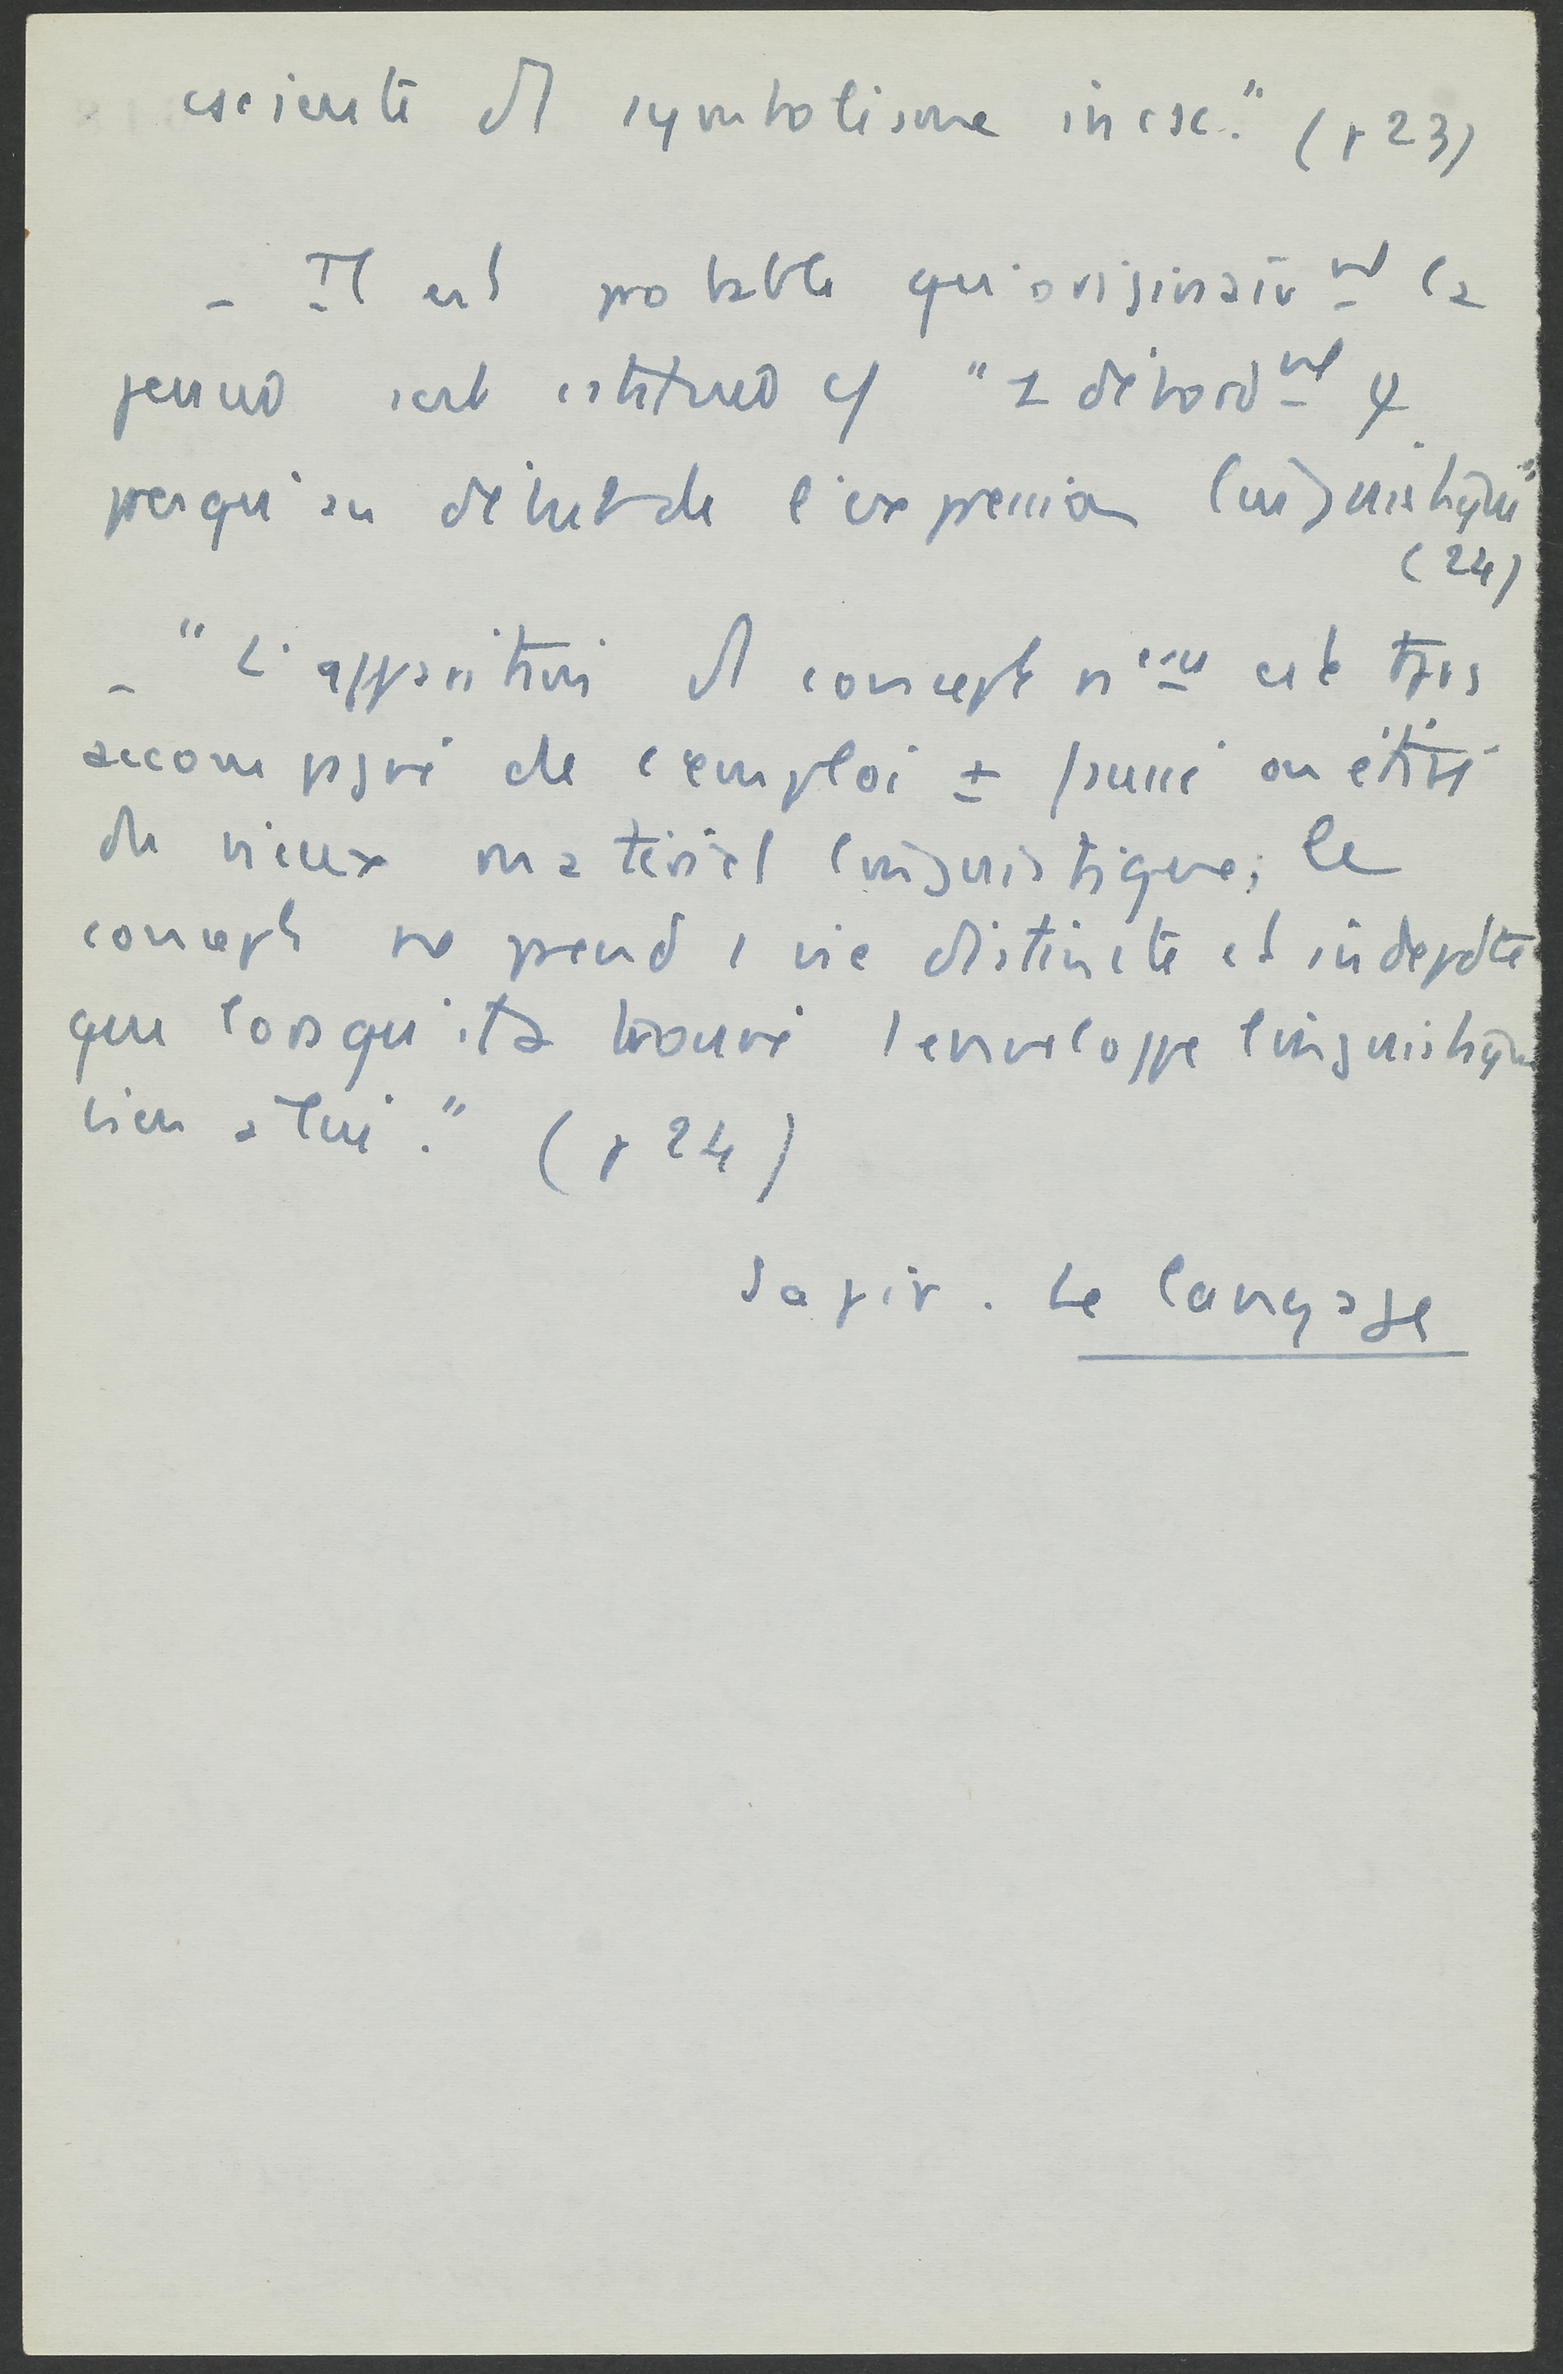 csciente d'1 symbolisme incsc." (p 23)
- Il est probable qu'originairmt la
pensée s'est cstituée c/ "1 débordmt ψ
presqu'au début de l'expression linguistique"
(24)
- "L'apparition d'1 concept nveau est tjrs
accompagné de l'emploi ± forcé ou étiré
du vieux matériel linguistique; le
concept ne prend 1 vie distincte et indepdte
que lorsqu'il a trouvé 1 enveloppe linguistique
bien à lui." (p 24)
Sapir. Le langage